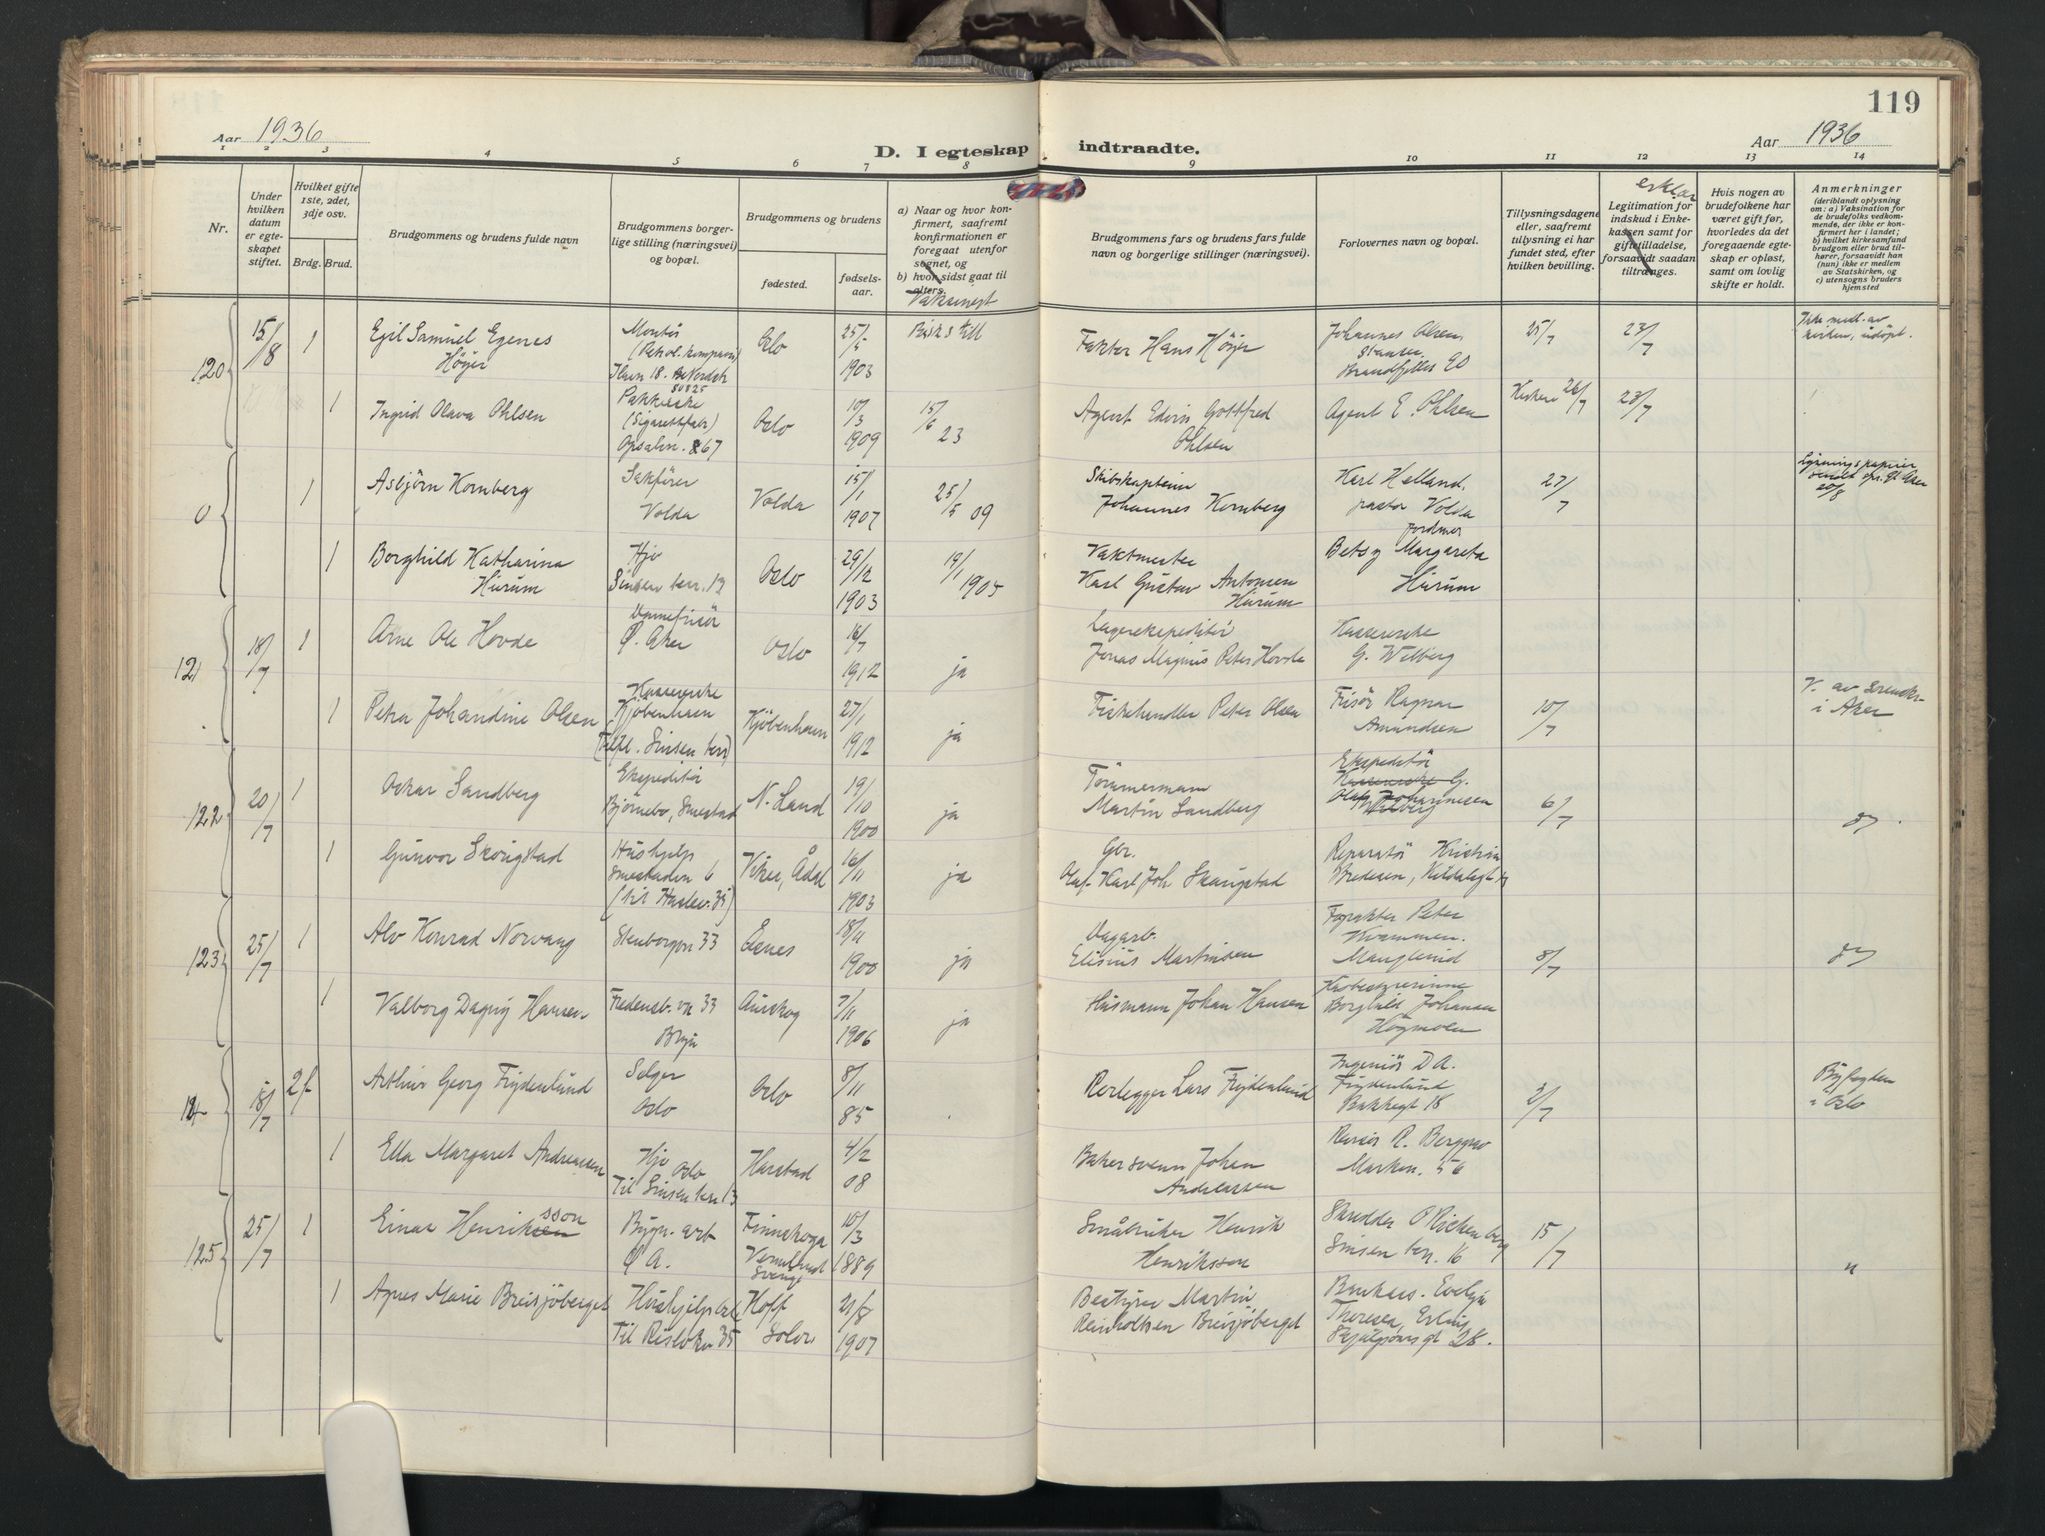 119
Aar 1936
D. I egteskap indtraadte.
Aar 1936
1 2 3 4 5 6 7 8 9 10 11 12 13 14
Nr.
Under hvilken datum er egteskapet stiftet.
Hvilket gifte 1ste, 2det, 3dje osv.
Brdg. Brud.
Brudgommens og brudens fulde navn
Brudgommens borgerlige stilling (næringsvei) og bopæl.
Brudgommens og brudens
fødested.
fødselsaar.
a) Naar og hvor konfirmert, saafremt konfirmationen er foregaat utenfor sognet, og
b) hvor sidst gaat til alters.
Vaksinert
Brudgommens fars og brudens fars fulde navn og borgerlige stillinger (næringsvei).
Forlovernes navn og bopæl.
Tillysningsdagene eller, saafremt tillysning ei har fundet sted, efter hvilken bevilling.
Legitimation for indskud i Enkekassen samt for giftetilladelse, forsaavidt saadan tiltrænges.
Hvis nogen av brudefolkene har været gift før, hvorledes da det foregaaende egteskap er opløst, samt om lovlig skifte er holdt.
Anmerkninger
(deriblandt oplysning om: a) Vaksination for de brudefolks vedkommende, der ikke er konfirmert her i landet; b) hvilket kirkesamfund brudgom eller brud tilhører, forsaavidt han (hun) ikke er medlem av Statskirken, og c) utensogns bruders hjemsted
120
15/8 1
Egil Samuel Egenes
Høyer
Montør
Oslo
25/5
1903
Faktor Hans Høyer
Johannes Olsen
25/7
23/7
Ikke medl. av
kirken, udöpt.
1
Ingrid Olava Ohlsen
Pakkerske
(Sigarettfabr)
Opsaln. 867
Oslo
10/3
1909
15/6 23
Agent Edvin Gottfred
Ohlsen
Agent E. Ohlsen
26/7
23/7
0
1
Asbjørn Kornberg
Sakfører
Volda
Volda
15/1
1907
25/5 09
Skibskaptein
Johannes Kornberg
Karl Helland.
pastor Volda
27/7
20/8
1
Borghild Katharina
Hurum
Hjv
Sinsen terr. 13
Oslo
29/12
1903
19/1 1905
Vaktmester
Karl Gustav Antonsen
Hurum
Jordmor
Betsy Margareta
Hurum
121
18/7 1
Arne Ole Hovde
Damefrisør
Ø. Aker
Oslo
16/7
1912
ja
Lagerekspeditör
Jonas Magnus Peter Hovde
Kassererske
G. Wilberg
1
Petra Johandine Olsen
Kassererske
Kjöbenhavn
Kjöbenhavn
27/1
1912
ja
Fiskehandler Peter Olsen
Frisör Ragnar
Amundsen
10/7
i Aker
122
20/7 1
Oskar Sandberg
Ekspeditör
Bjørnebo, Smestad
N. Land
19/10
1900
ja
Tömmermann
Martin Sandberg
Ekspeditör
Olaf Johannesen
6/7
1
Gunvor Skougstad
Hushjelp
Smestadm 6
Viker, Ådal
16/11
1903
ja
Gbr.
Olaf Karl Joh Skaugstad
Reparatör Kristian
Bredesen,
123
25/7 1
Alv Konrad Norvang
Stenborgvn 33
Åsnes
18/11
1900
ja
Dagarb.
Elisius Martinsen
Peter
Kvammen.
Manglerud
8/7
1
Valborg Dagny Hansen
Fredensb. vn 33
Bryn
Aurskog
7/11
1906
ja
Husmann Johan Hansen
Husbestyrerinne
Borghild Johansen
Høgmoen
124
18/7 2
Arthur Georg Frydenlund
Selger
Oslo
Oslo
8/11
85
Rørlegger Lars Frydenlund
Ingeniör D A.
Frydenlund
Bakkegt 18
2/7
Byfogden
i Oslo
1
Ella Margaret Andreassen
Hjv Oslo
Til Sinsen terr 13
Harstad
4/2
08
Bakersvenn Johan
Andreassen
Revisor R. Berggrav
Marken. 56
125
25/7 1
Einar Henriksson
Bygn. arb
Ø A.
Finnskoga
Vermland
Sverige
10/3
1889
Småbruker Henrik
Henriksson
Skredder O Rickenberg
Sinsen terr. 16
15/7
"
1
Agnes Marie Breisjöberget
Hushjelp
Til Risløkkv 35
Hoff
Solør
21/8
1907
Bestyrer Martin
Reinholtsen Breisjöberget
Evelyn
Theresea, Erling
Skjalgsons gt 28.